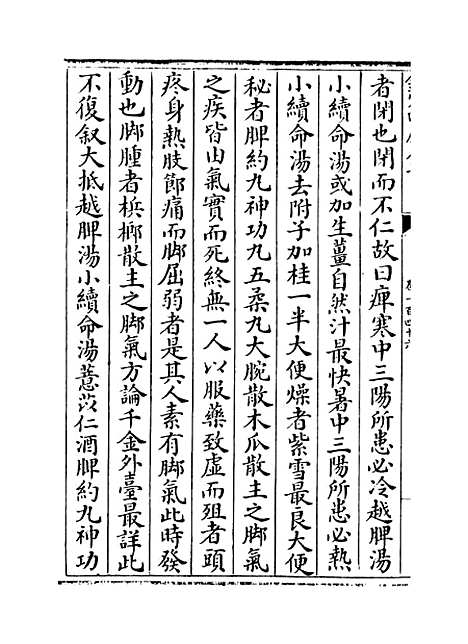 者閉也閉而不仁故曰痺寒中三陽所患必冷越脾湯
小續命湯或加生薑自然汁最快暑中三陽所患必熱
小續命湯去附子加桂一半大便燥者紫雪最良大便
秘者脾約丸神功丸五柔丸大腕散木瓜散主之脚氣
之疾皆由氣實而死終無一人以服藥致虛而殂者頭
疼身熱肢節痛而脚屈弱者是其人素有脚氣此時發
動也脚腫者檳榔散主之脚氣方論千金外臺最詳此
不復叙大抵越脾湯小續命湯薏苡仁酒脾約丸神功